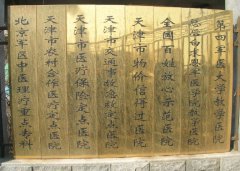 第四军医大学教学医院
全国百姓放心示范医院
天津市物价信得过医院
天津市交通事故急救定点医院
天津市医疗保险定点医院
天津市农村合作医疗定点医院
北京军区中医理疗重点专科